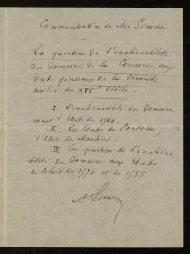 Communication de Mr Esmein
La question de l'inaliénabilité
du Domaine de la Couronne aux
Etats généraux de la seconde
moitié du XVIe siècle.
I. L'inaliénabilité du Domaine
avant l'Edit de 1566.
II. Les Etats de Pontoise,
l'Edit de Moulins.
III. La question de l'inaliéna
bilité du Domaine aux Etats
de Blois de 1576 et de 1588
A Esmein